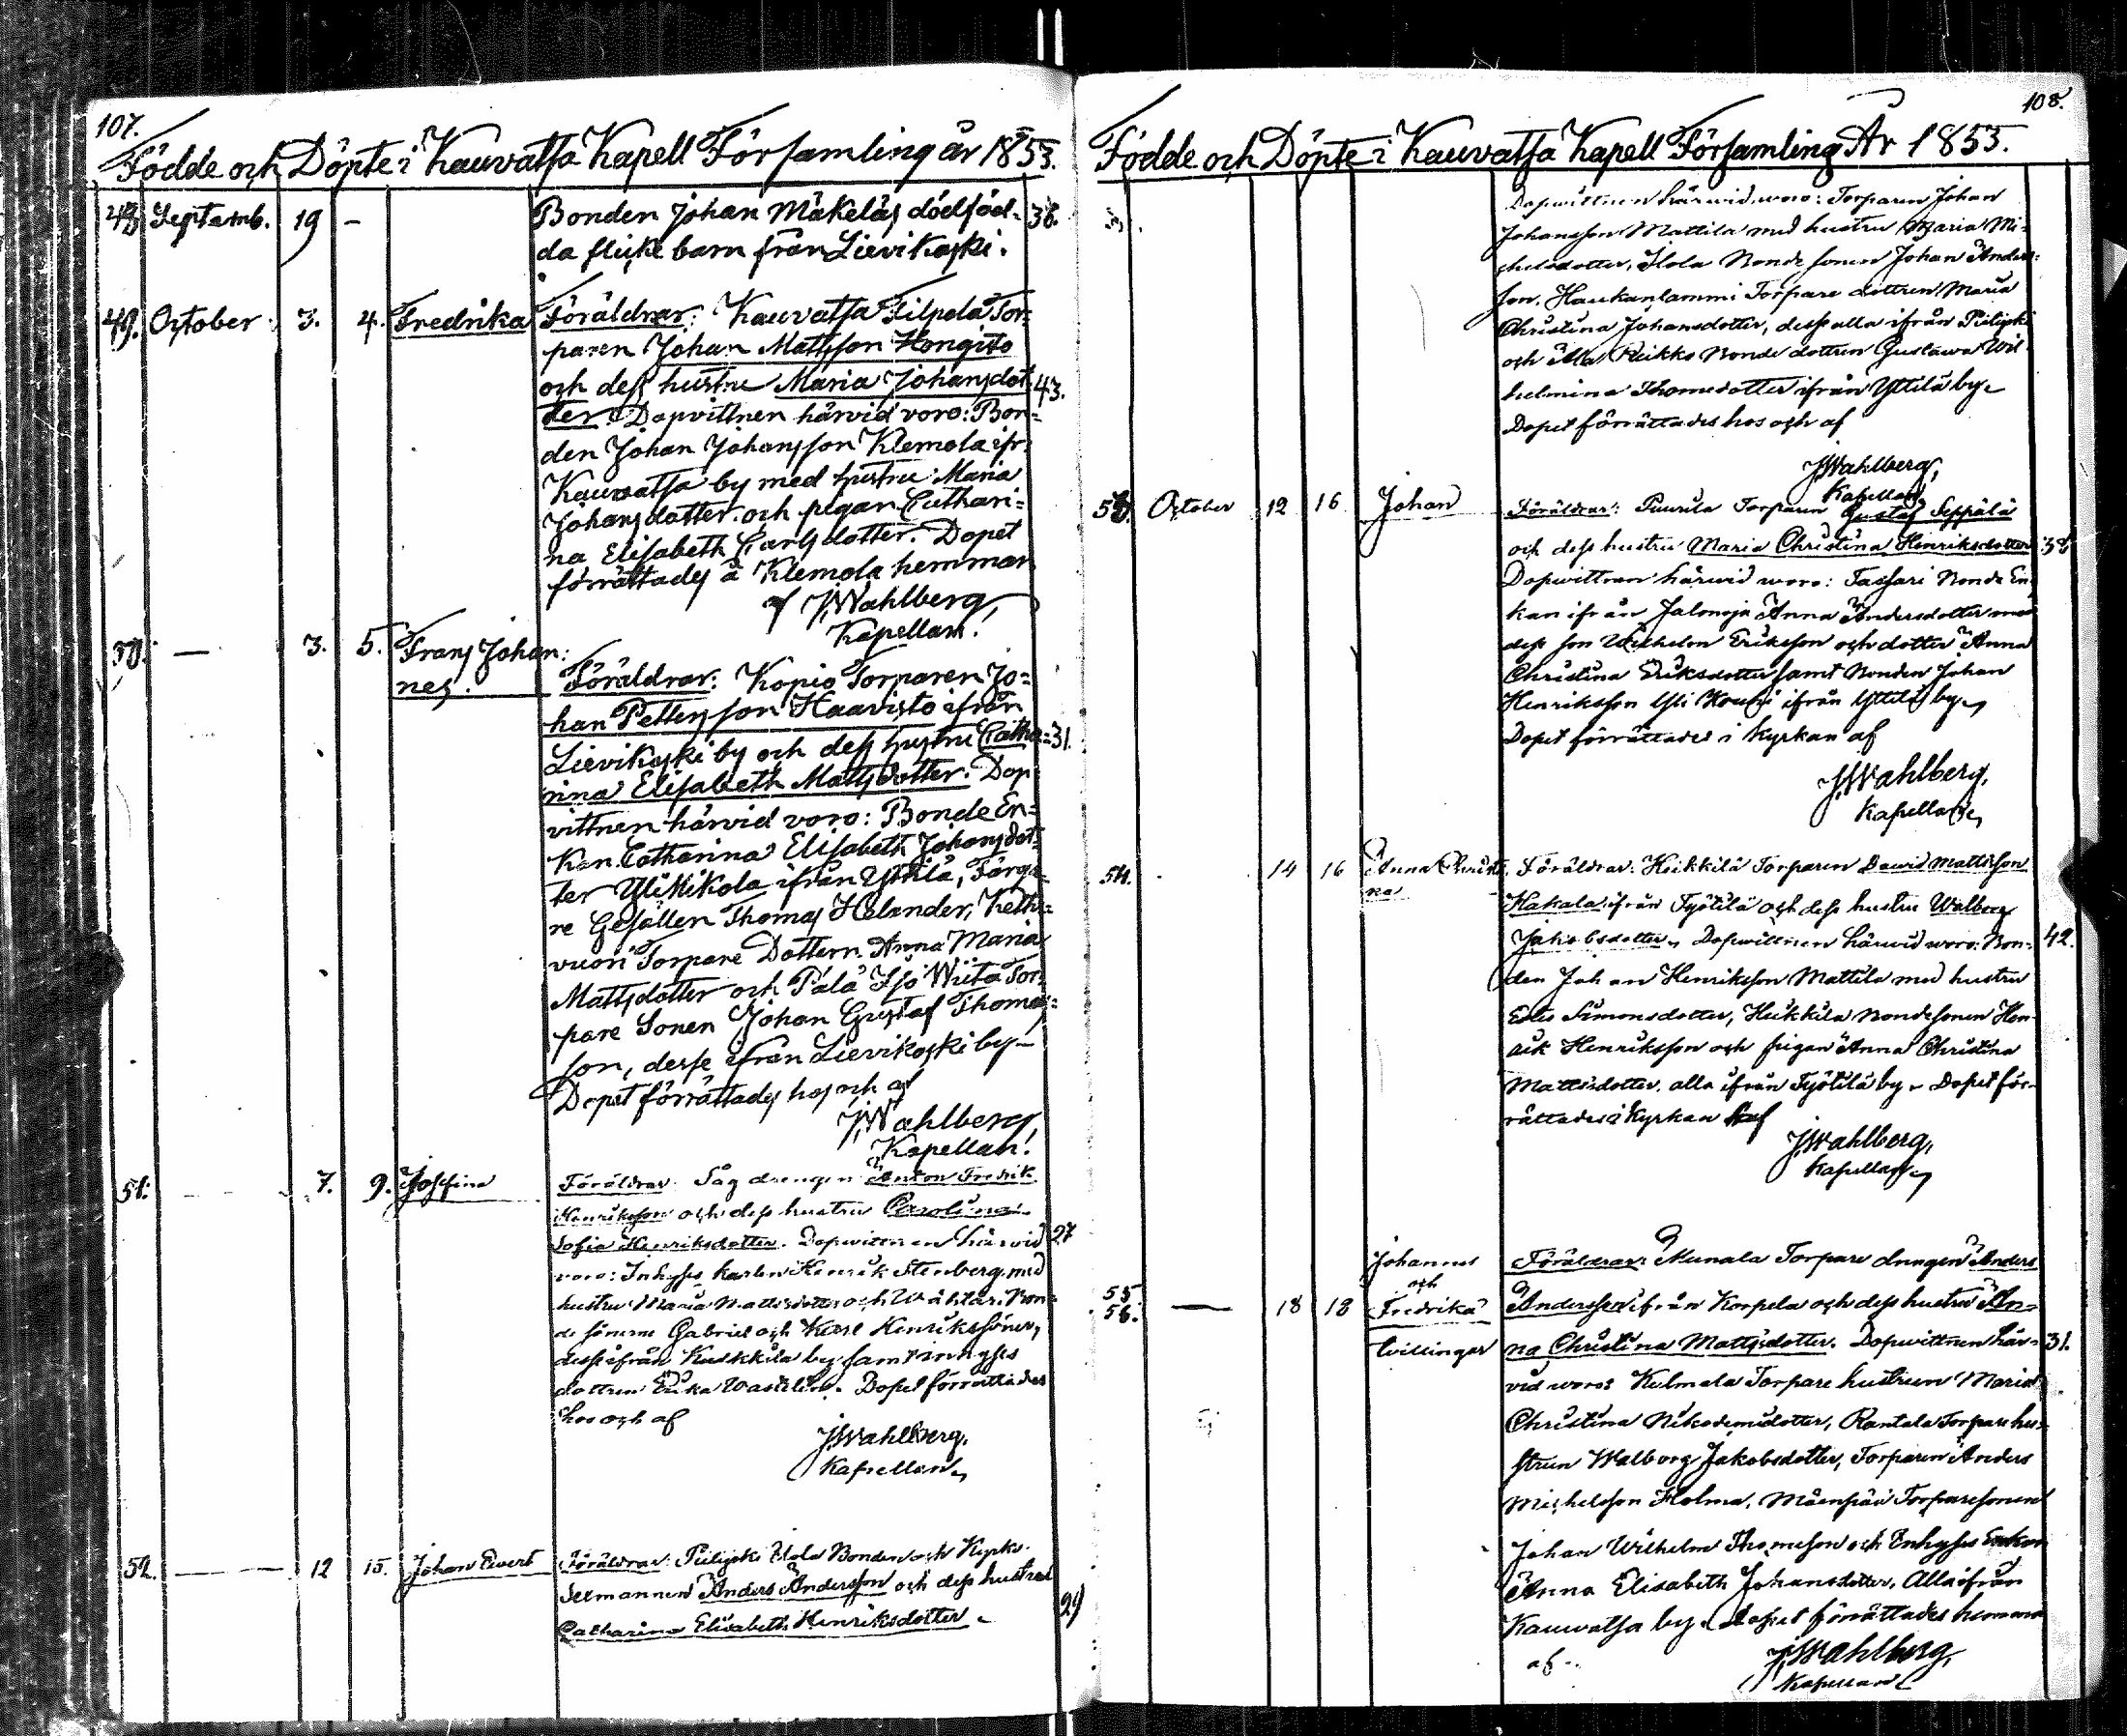 107.
Födde och Döpte i Kauvatsa Kapell Församling år 1853.
48. Septemb. 19 - Bonden Johan Mäkeläs dödföd- 38.
da flicke barn från Lievikoski.
49. October 3. 4. Fredrika Föräldrar: Kauvatsa Filpola Tor-
paren Johan Mattsson Hongisto
och dess hustru Maria Johansdot- 43.
ter. Dopvittnen härvid voro: Bon-
den Johan Johansson Klemola ifr.
Kauvatsa by med hustru Maria
Johansdotter och pigan Cathari-
na Elisabeth Carlsdotter. Dopet
förrättades å Klemola hemman
af J Wahlberg,
Kapellan.
50. — 3. 5. Frans Johan-
nes. Föräldrar: Kopio Torparen Jo-
han Pettersson Haavisto ifrån
Lievikoski by och dess hustru Catha- 31.
rina Elisabeth Mattsdotter. Dop-
vittnen härvid voro: Bonde En-
kan Catharina Elisabeth Johansdot-
ter Yli Mikola ifrån Yttilä, Färga-
re Gesällen Thomas Helander, Kettu-
vuori Torpare Dottern Anna Maria
Mattsdotter och Pälä Iso Wiita Tor-
pare Sonen Johan Gustaf Thomas-
son, desse ifrån Lievikoski by
Dopet förrättades hos och af
J Wahlberg,
Kapellan!
51. — 7. 9. Josefina Föräldrar: Såg drengen Anton Fredrik
Henriksson och dess hustru Carolina
Sofia Henriksdotter. Dopwittnen härvid 27
voro: Inhyses karlen Henrik Stenberg med
hustru Maria Mattsdotter och Bon-
de sönerne Gabriel och Karl Henrikssöner,
desse ifrån by samt inhyses
dottren Erika. Dopet förrättades
hos och af
J Wahlberg.
Kapellan
52. — 12 15. Johan Evert Föräldrar: Piilijoki Ilola Bonden och Kyrko-
Anders Andersson och dess hustru
Catharina Elisabeth Henriksdotter 29
108.
Födde och Döpte i Kauvatsa Kapell Församling År 1853.
Dopwittnen härwid woro: Torparen Johan
Johansson Mattila med hustru Maria Mi-
chelsdotter, Ilola Bonde sonen Johan Anders-
son, Haukanlammi Torpare dottren Maria
Christina Johansdotter, desse alla ifrån Piilijoki
och Ala Keikko Bonde dottren Gustawa Wil-
helmina Thomsdotter ifrån Yttilä by
Dopet förrättades hos och af
J Wahlberg,
Kapellan
53. October 12 16 Johan Föräldrar: Puurila Torparen Gustaf Seppälä
och dess hustru Maria Christina Henriksdotter 38
Dopwittnen härwid woro: Tassari Bonde En-
kan ifrån Jalonoja Anna Andersdotter med
dess son Wilhelm Eriksson och dotter Anna
Christina Eriksdotter samt Bonden Johan
Henriksson Yli Kouhi ifrån Yttilä by
Dopet förrättades i Kyrkan af
J Wahlberg,
Kapellan
54. 14 16 Anna Christi-
na Föräldrar: Heikkilä Torparen Dawid Mattsson
Hakala ifrån Työtilä och dess hustru Walborg
Jakobsdotter. Dopwittnen härwid woro: Bon- 42.
den Johan Henriksson Mattila med hustru
Simonsdotter, Heikkilä Bondesonen Hen-
rik Henriksson och pigan Anna Christina
Mattsdotter, alla ifrån Työtilä by. Dopet för-
rättades i Kyrkan af
J Wahlberg,
Kapellan
55.
56. — 18 18 Johannes
och
Fredrika
tvillingar
Föräldrar: Munala Torpare drengen Anders
Andersson ifrån Korpela och dess hustru An-
na Christina Mattsdotter. Dopwittnen här- 31.
vid woro: Kulmala Torpare hustrun Maria
Christina Nikodemusdotter, Rantala Torpare hu-
strun Walborg Jakobsdotter, Torparen Anders
Michelsson Holma, Mäenpää Torparesonen
Johan Wilhelm Thomasson och Inhyses Enkan
Anna Elisabeth Johansdotter, Alla ifrån
Kauvatsa by. Dopet förrättades hemma
af
J Wahlberg,
Kapellan